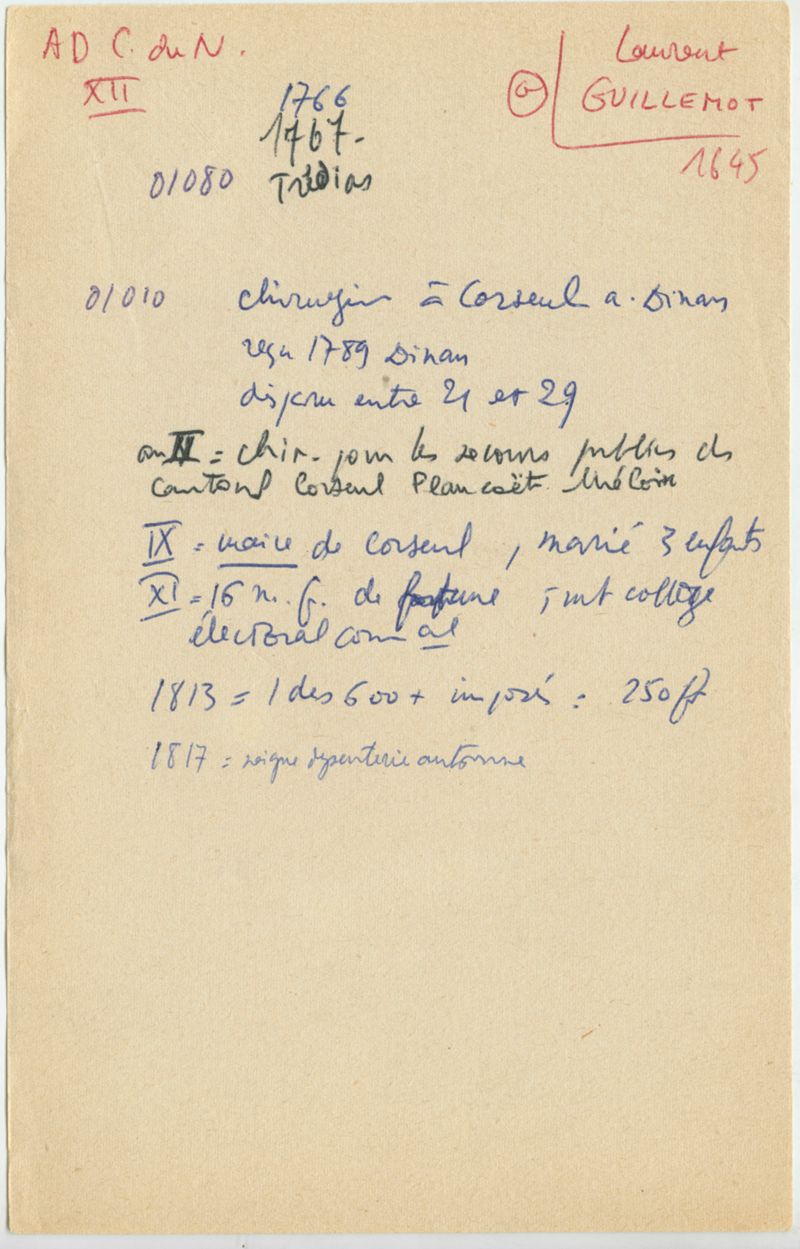 AD C. du N.
XII
Laurent
G GUILLEMOT
1645
1766
1767-
01080 Trédias
01010 chirurgien à Corseul a. Dinan
reçu 1789 Dinan
disparu entre 21 et 29
an II = chir. pour les secours publics des
cantons Corseul Plancoët
IX = maire de Corseul, marié 3 enfants
XI = 16 m. f. de fortune, mt collège
électoral comm al
1813 = 1 des 600 + imposés : 250 ff
1817 = soigne dysenterie automne